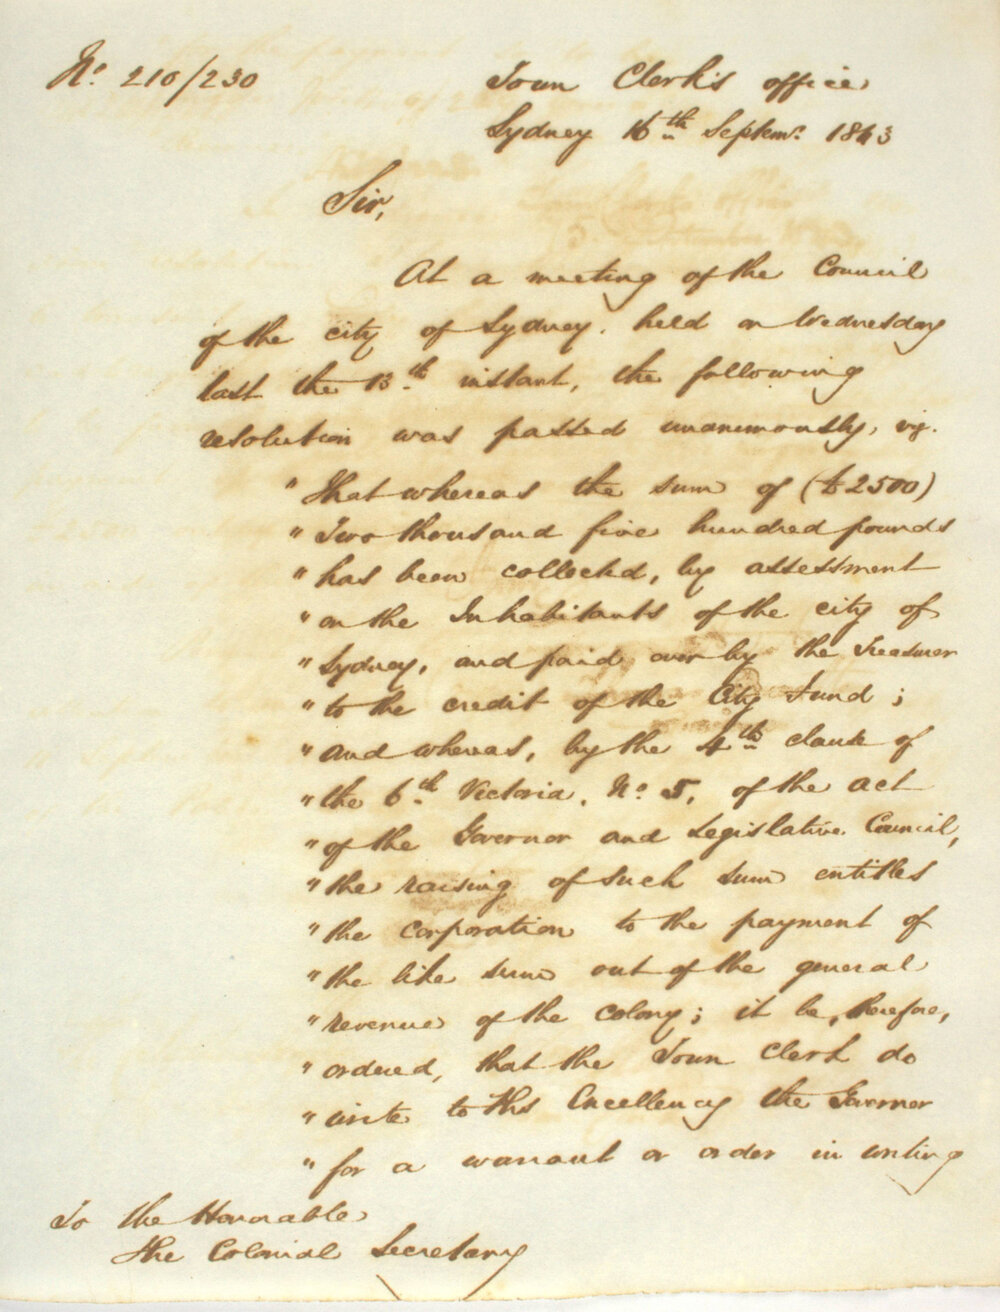 No. 210/230
Town Clerk's office
Sydney 16th Septemr. 1843
Sir,
At a meeting of the Council
of the city of Sydney, held on Wednesday
last the 13th instant, the following
resolution was passed unanimously, viz.
"That whereas the sum of (£2500)
"Two thousand five hundred pounds
"has been collected, by assessment
"on the Inhabitants of the city of
"Sydney, and paid over by the Treasurer
"to the credit of the City Fund;
"and whereas, by the 4th clause of
"the 6th Victoria, No. 5, of the act
"of the Governor and Legislative Council,
"the raising of such sum entitles
"the corporation to the payment of
"the like sum out of the general
"revenue of the colony; it be, therefore,
"ordered, that the Town Clerk do
"write to His Excellency the Governor
"for a warrant or order in writing
To the Honorable
The Colonial Secretary